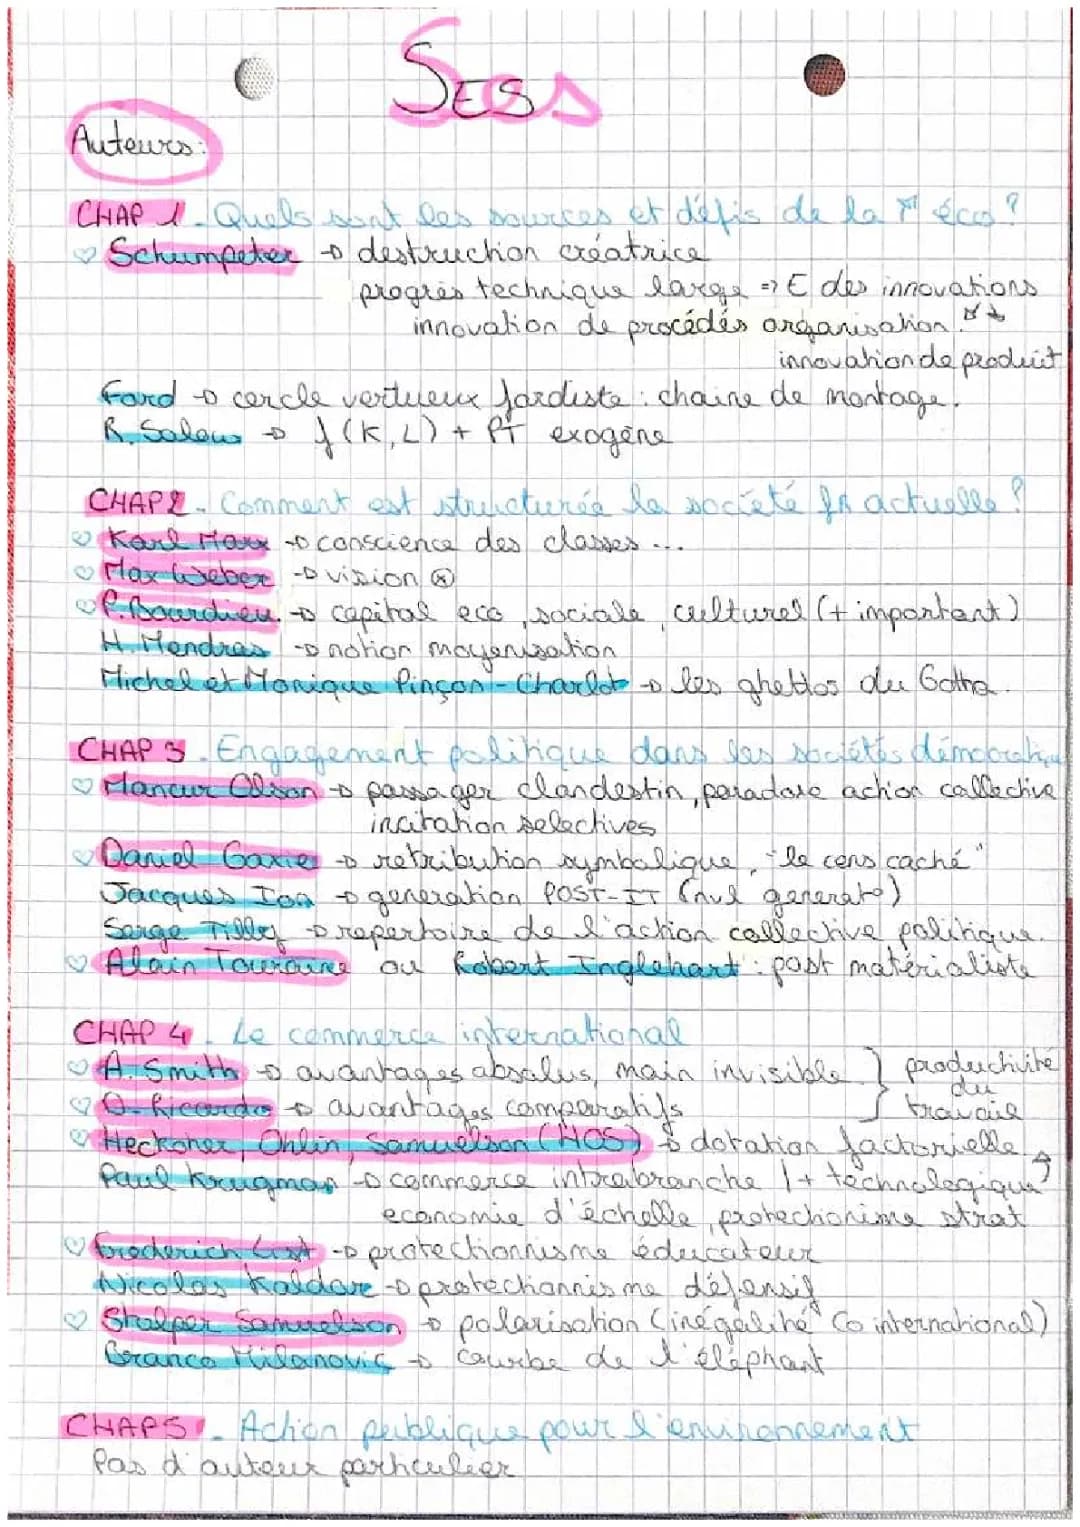 SES
Auteurs:
CHAP 1 - Quels sont les sources et défis de la éco ?
♡ Schumpeter → destruction créatrice
progrès technique large => E des innovations
innovation de procédés organisation
innovation de produit
Ford → cercle vertueux fordiste : chaine de montage.
R. Solow → f(K, L) + PT exogène
CHAP 2 - Comment est structurée la société fr actuelle ?
♡ Karl Marx → conscience des classes ...
♡ Max Weber → vision
♡ P. Bourdieu → capital eco, sociale, culturel (+ important)
H. Mendras → notion moyenisation
Michel et Monique Pinçon-Charlot → les ghettos du Gotha.
CHAP 3 - Engagement politique dans les sociétés démocratique
♡ Mancur Olson → passager clandestin, paradoxe action collective
incitation selectives
♡ Daniel Gaxie → retribution symbolique, "le cens caché"
Jacques Ion → generation POST-IT (nvl generat°)
Serge Tilly → repertoire de l'action collective politique.
♡ Alain Touraine ou Robert Inglehart : post matérialiste
CHAP 4 - Le commerce international
♡ A. Smith → avantages absolus, main invisible } productivité du travail
♡ D. Ricardo → avantages comparatifs
♡ Heckoher, Ohlin, Samuelson (HOS) → dotation factorielle
Paul Krugman → commerce intrabranche / + technologique
economie d'échelle, protectionime strat
♡ Frederich List → protectionnisme éducateur
Nicolas Kaldor → protectionnisme défensif
♡ Stolper Samuelson → polarisation (inégalité Co international)
Branco Milanovic → Courbe de l'éléphant
CHAP 5 - Action publique pour l'environnement
Pas d'auteur particulier